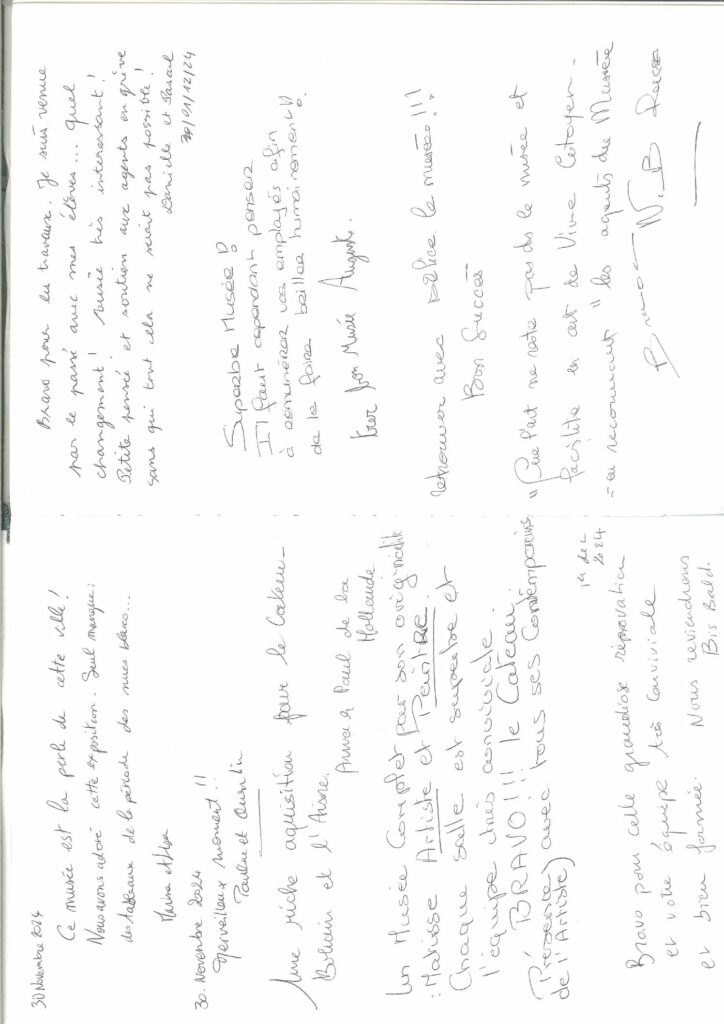 30 Novembre 2024
Ce musée est la perle de cette ville !
Nous avons adoré cette exposition. Seul manque :
des tableaux de la période des nues bleus...
30. Novembre 2024
Merveilleux moment !!
Pauline et Quentin
Une riche aquisition pour le Cateau -
et l'Aisne.
Anna & Paul de la
Hollande
Un Musée Complet par son originalité
: Matisse Artiste et Peintre.
Chaque salle est superbe et
l'équipe très conviviale
BRAVO !!! le Cateau.
Présence) avec tous ses Contemporains
de l'Artiste)
1er dec
2024
Bravo pour cette grandiose rénovation
et votre équipe très conviviale
et bien formée. Nous reviendrons
Bravo pour les travaux. Je suis venue
par le passé avec mes élèves... quel
changement ! Musée très intéressant !
Petite pensée et soutien aux agents en grève
sans qui tout cela ne serait pas possible !
Danielle et Pascal
01/12/24
Superbe Musée !
Il faut cependant penser
à rémunérer vos employés afin
de le faire briller humainement !
très bon Musée Auguste.
retrouver avec délice le musée !!!
Bon Succès
"Que l'art ne reste pas ds le musée et
facilite un art de Vivre Citoyen -
- en reconnaissant" les agents du Musée
Bravo N.B